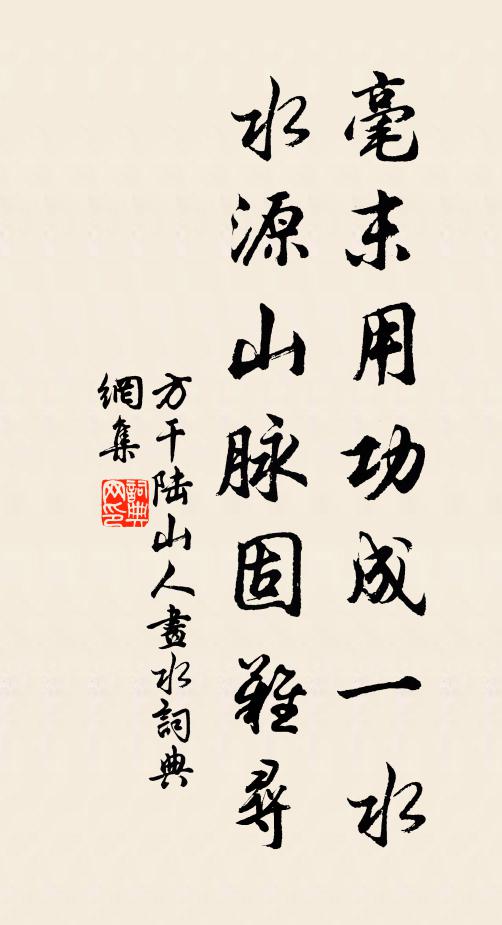 毫末用功成一水
水源山脉固難尋
方干陆山人畫水詞典
網集
詞典網印